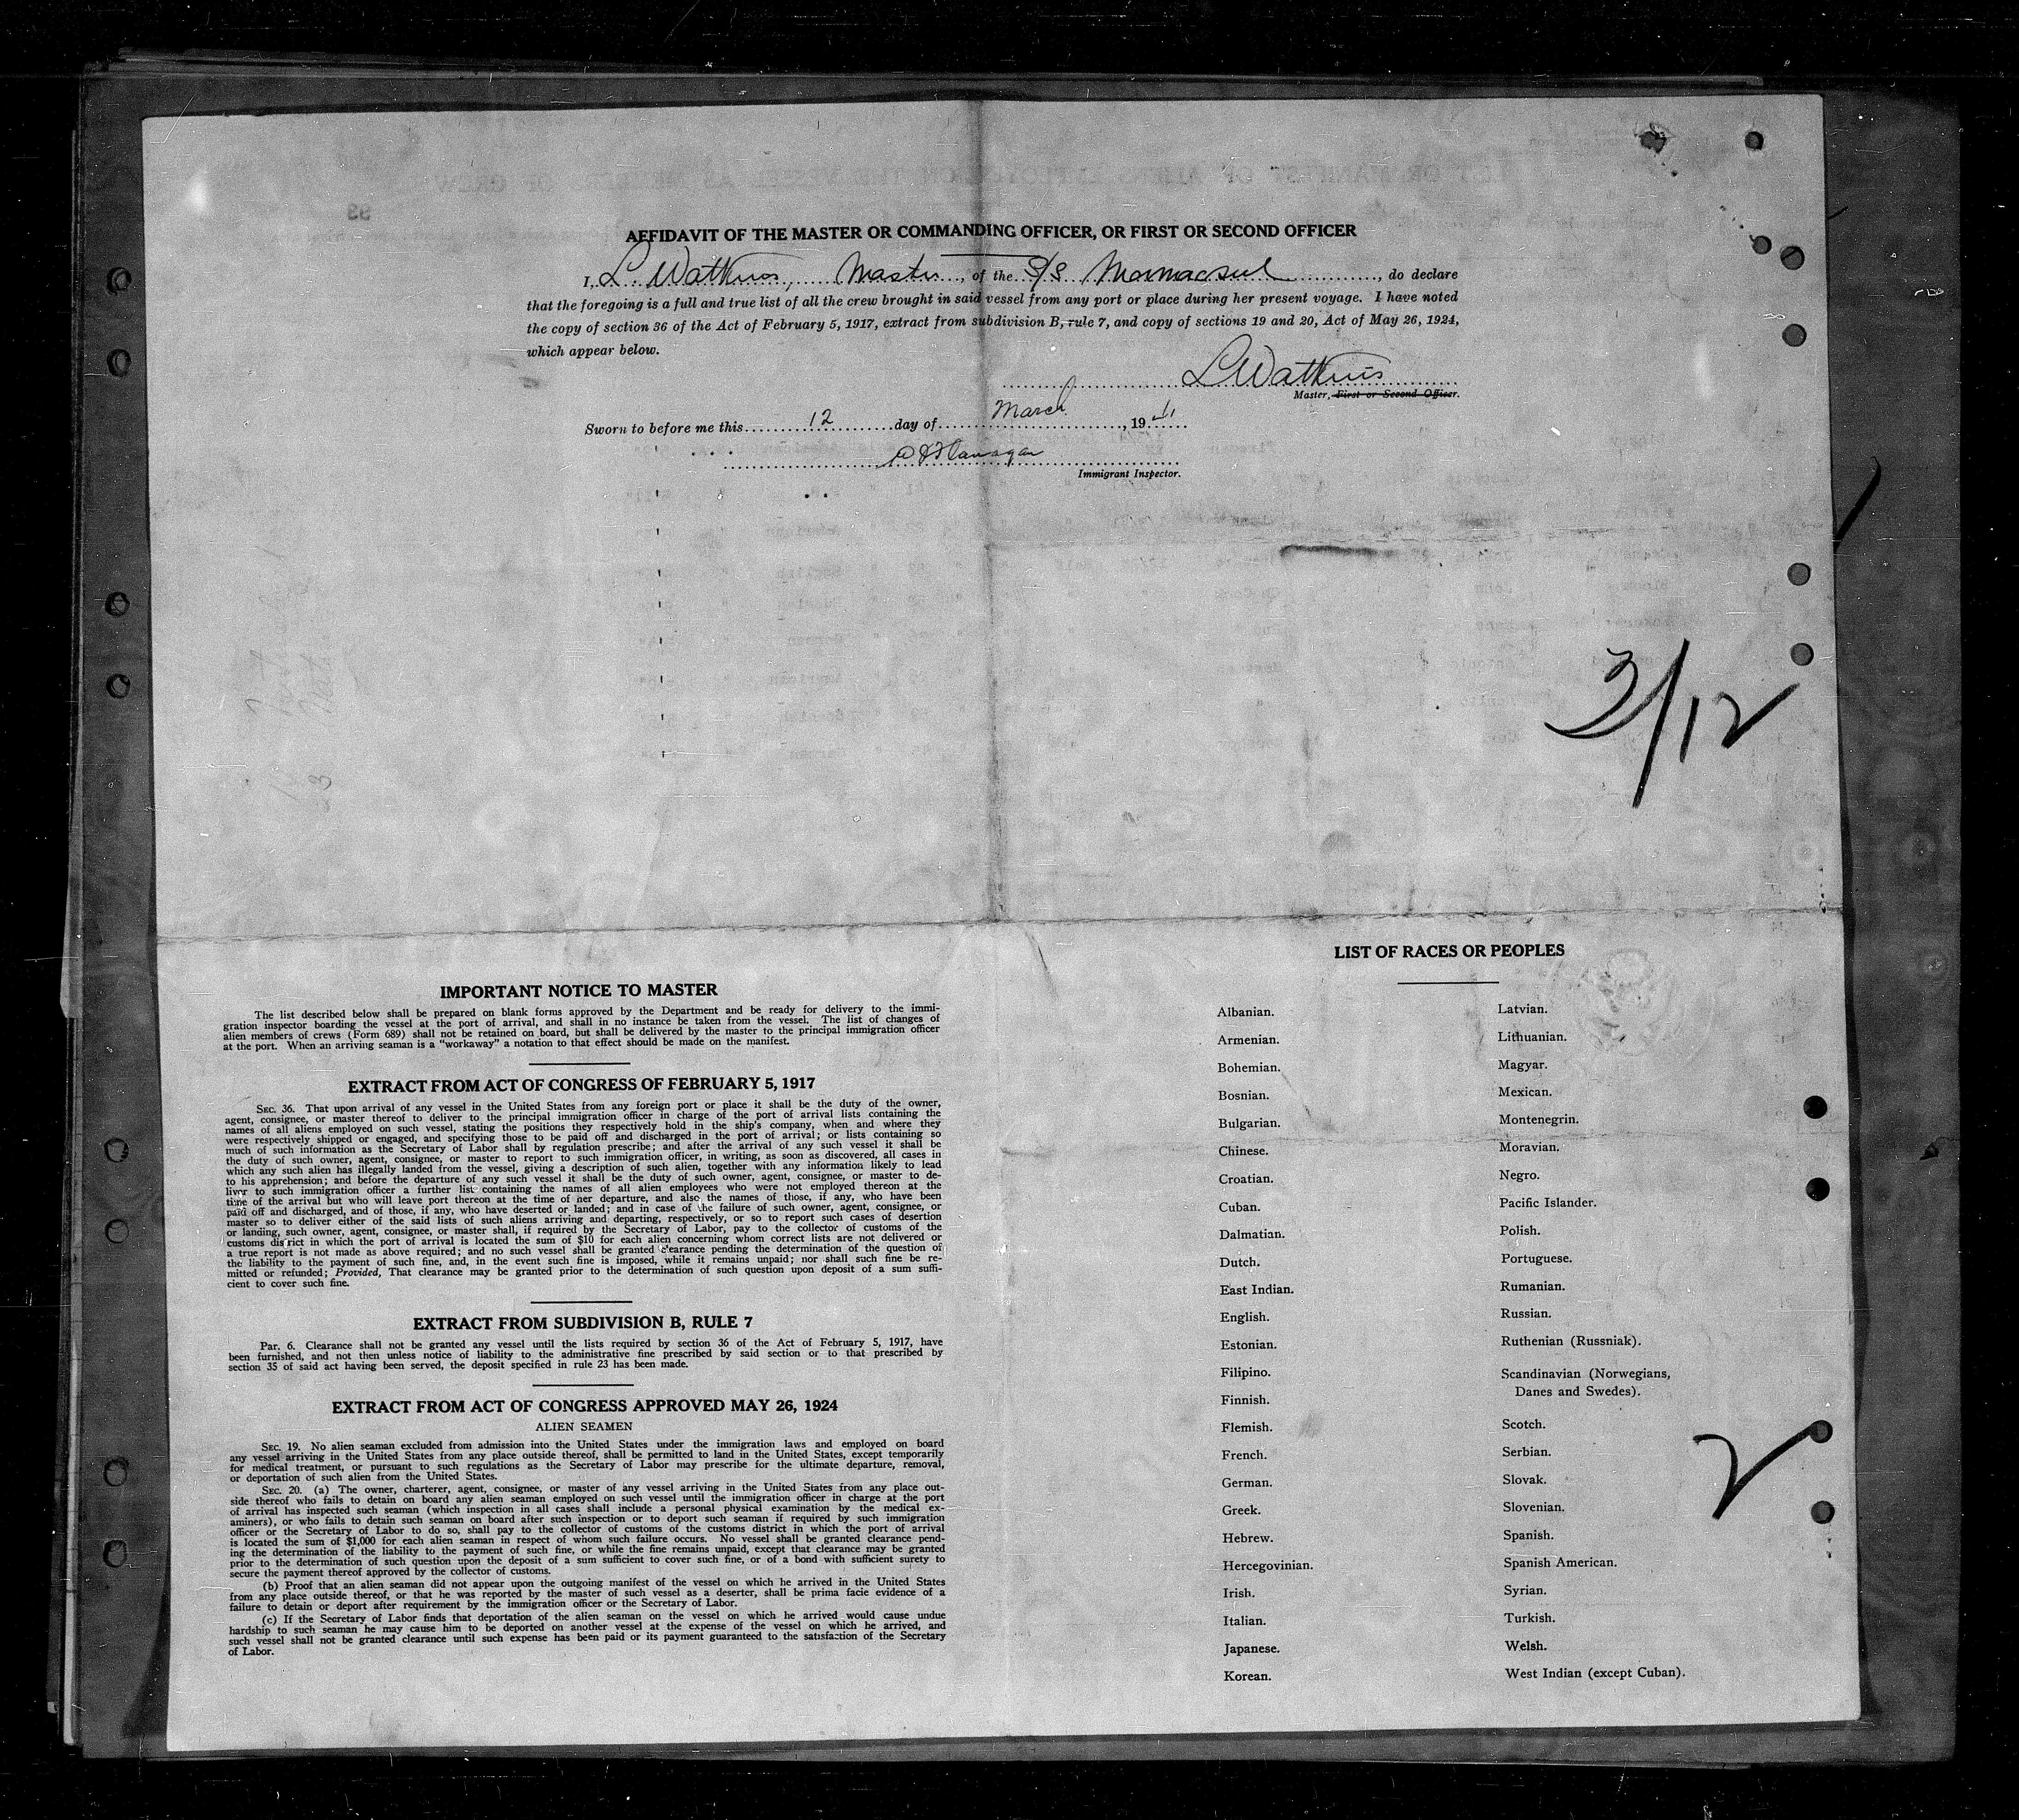 AFFIDAVIT OF THE MASTER OR COMMANDING OFFICER, OR FIRST OR SECOND OFFICER
I, L Watkins, Master, of the S/S Mormacsul, do declare
that the foregoing is a full and true list of all the crew brought in said vessel from any port or place during her present voyage. I have noted
the copy of section 36 of the Act of February 5, 1917, extract from subdivision B, rule 7, and copy of sections 19 and 20, Act of May 26, 1924,
which appear below.
L Watkins
Master, First or Second Officer.
Sworn to before me this 12 day of March, 19 41
Flanagan
Immigrant Inspector.
3/12
IMPORTANT NOTICE TO MASTER
The list described below shall be prepared on blank forms approved by the Department and be ready for delivery to the immi-
gration inspector boarding the vessel at the port of arrival, and shall in no instance be taken from the vessel. The list of changes of
alien members of crews (Form 689) shall not be retained on board, but shall be delivered by the master to the principal immigration officer
at the port. When an arriving seaman is a "workaway" a notation to that effect should be made on the manifest.
EXTRACT FROM ACT OF CONGRESS OF FEBRUARY 5, 1917
SEC. 36. That upon arrival of any vessel in the United States from any foreign port or place it shall be the duty of the owner,
agent, consignee, or master thereof to deliver to the principal immigration officer in charge of the port of arrival lists containing the
names of all aliens employed on such vessel, stating the positions they respectively hold in the ship's company, when and where they
were respectively shipped or engaged, and specifying those to be paid off and discharged in the port of arrival; or lists containing so
much of such information as the Secretary of Labor shall by regulation prescribe; and after the arrival of any such vessel it shall be
the duty of such owner, agent, consignee, or master to report to such immigration officer, in writing, as soon as discovered, all cases in
which any such alien has illegally landed from the vessel, giving a description of such alien, together with any information likely to lead
to his apprehension; and before the departure of any such vessel it shall be the duty of such owner, agent, consignee, or master to de-
liver to such immigration officer a further list containing the names of all alien employees who were not employed thereon at the
time of the arrival but who will leave port thereon at the time of her departure, and also the names of those, if any, who have been
paid off and discharged, and of those, if any, who have deserted or landed; and in case of the failure of such owner, agent, consignee, or
master so to deliver either of the said lists of such aliens arriving and departing, respectively, or so to report such cases of desertion
or landing, such owner, agent, consignee, or master shall, if required by the Secretary of Labor, pay to the collector of customs of the
customs district in which the port of arrival is located the sum of $10 for each alien concerning whom correct lists are not delivered or
a true report is not made as above required; and no such vessel shall be granted clearance pending the determination of the question of
the liability to the payment of such fine, and, in the event such fine is imposed, while it remains unpaid; nor shall such fine be re-
mitted or refunded; Provided, That clearance may be granted prior to the determination of such question upon deposit of a sum suffi-
cient to cover such fine.
EXTRACT FROM SUBDIVISION B, RULE 7
Par. 6. Clearance shall not be granted any vessel until the lists required by section 36 of the Act of February 5, 1917, have
been furnished, and not then unless notice of liability to the administrative fine prescribed by said section or to that prescribed by
section 35 of said act having been served, the deposit specified in rule 23 has been made.
EXTRACT FROM ACT OF CONGRESS APPROVED MAY 26, 1924
ALIEN SEAMEN
SEC. 19. No alien seaman excluded from admission into the United States under the immigration laws and employed on board
any vessel arriving in the United States from any place outside thereof, shall be permitted to land in the United States, except temporarily
for medical treatment, or pursuant to such regulations as the Secretary of Labor may prescribe for the ultimate departure, removal,
or deportation of such alien from the United States.
SEC. 20. (a) The owner, charterer, agent, consignee, or master of any vessel arriving in the United States from any place out-
side thereof who fails to detain on board any alien seaman employed on such vessel until the immigration officer in charge at the port
of arrival has inspected such seaman (which inspection in all cases shall include a personal physical examination by the medical ex-
aminers), or who fails to detain such seaman on board after such inspection or to deport such seaman if required by such immigration
officer or the Secretary of Labor to do so, shall pay to the collector of customs of the customs district in which the port of arrival
is located the sum of $1,000 for each alien seaman in respect of whom such failure occurs. No vessel shall be granted clearance pend-
ing the determination of the liability to the payment of such fine, or while the fine remains unpaid, except that clearance may be granted
prior to the determination of such question upon the deposit of a sum sufficient to cover such fine, or of a bond with sufficient surety to
secure the payment thereof approved by the collector of customs.
(b) Proof that an alien seaman did not appear upon the outgoing manifest of the vessel on which he arrived in the United States
from any place outside thereof, or that he was reported by the master of such vessel as a deserter, shall be prima facie evidence of a
failure to detain or deport after requirement by the immigration officer or the Secretary of Labor.
(c) If the Secretary of Labor finds that deportation of the alien seaman on the vessel on which he arrived would cause undue
hardship to such seaman he may cause him to be deported on another vessel at the expense of the vessel on which he arrived, and
such vessel shall not be granted clearance until such expense has been paid or its payment guaranteed to the satisfaction of the Secretary
of Labor.
LIST OF RACES OR PEOPLES
Albanian.
Armenian.
Bohemian.
Bosnian.
Bulgarian.
Chinese.
Croatian.
Cuban.
Dalmatian.
Dutch.
East Indian.
English.
Estonian.
Filipino.
Finnish.
Flemish.
French.
German.
Greek.
Hebrew.
Hercegovinian.
Irish.
Italian.
Japanese.
Korean.
Latvian.
Lithuanian.
Magyar.
Mexican.
Montenegrin.
Moravian.
Negro.
Pacific Islander.
Polish.
Portuguese.
Rumanian.
Russian.
Ruthenian (Russniak).
Scandinavian (Norwegians,
Danes and Swedes).
Scotch.
Serbian.
Slovak.
Slovenian.
Spanish.
Spanish American.
Syrian.
Turkish.
Welsh.
West Indian (except Cuban).
2